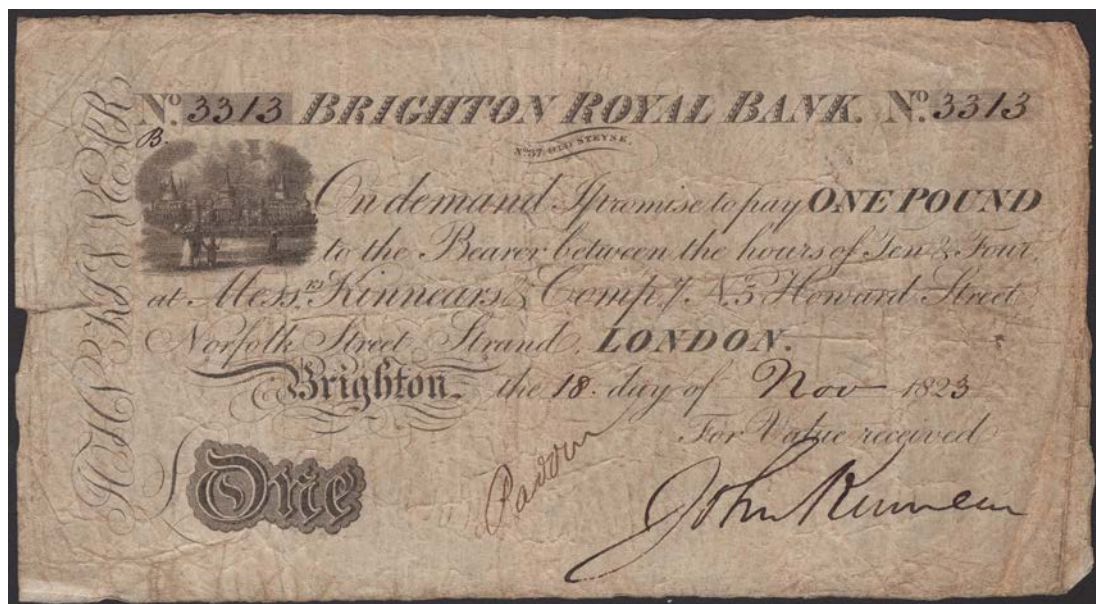 No. 3313 BRIGHTON ROYAL BANK. No. 3313
B.
No. 37 OLD STEYNE.
On demand I promise to pay ONE POUND
to the Bearer between the hours of Ten & Four,
at Messrs. Kinnears & Compy. No. 5 Howard Street
Norfolk Street, Strand, LONDON.
Brighton, the 18. day of Nov 1823
For Value received
One
John Kinnear
JOHN KINNEAR